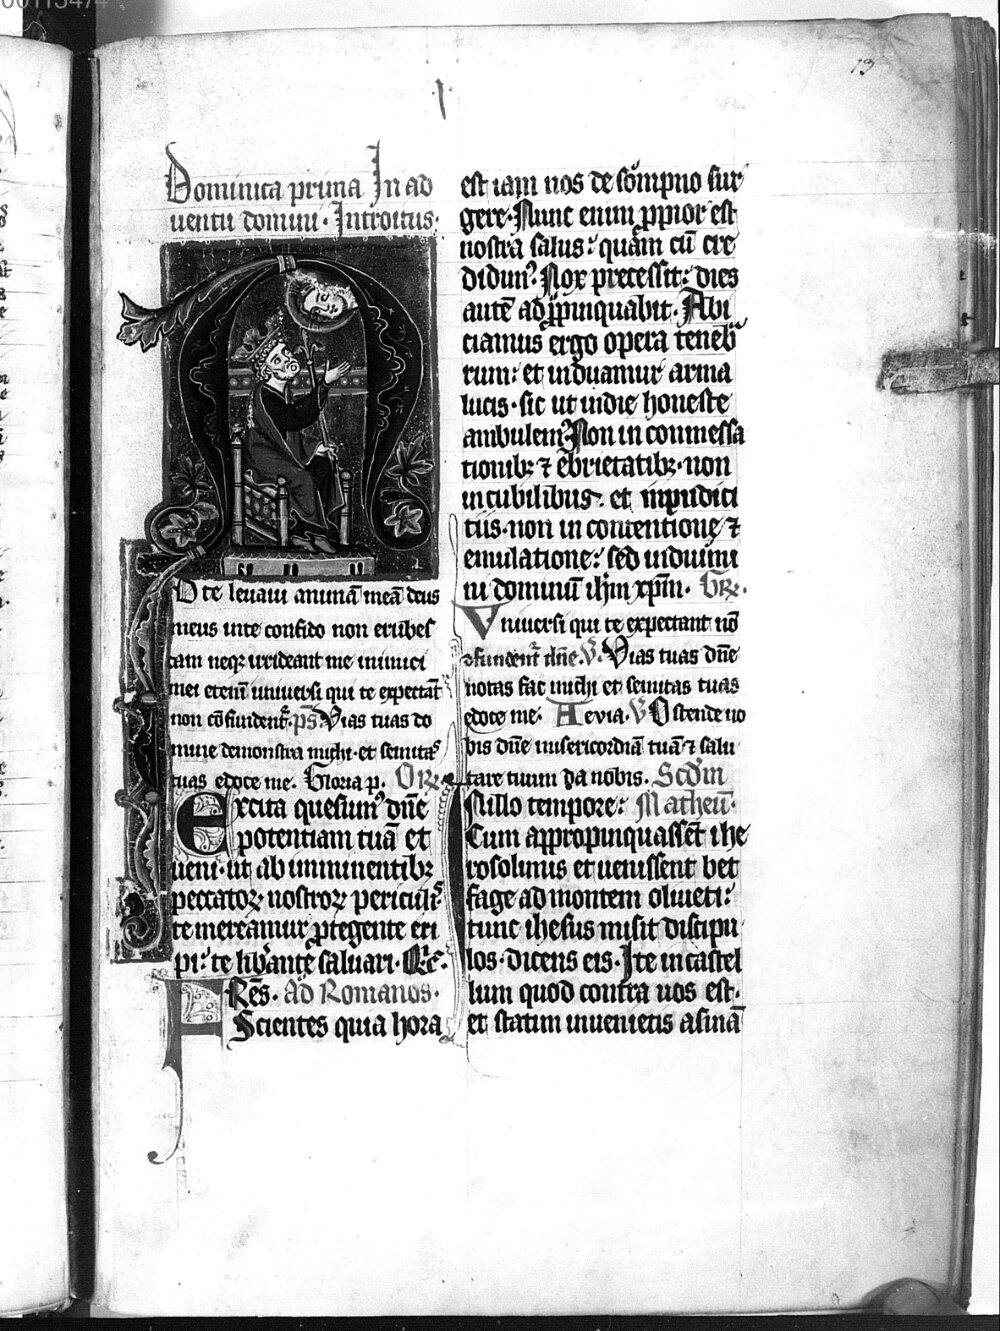 13
Dominica prima In ad
uentu domini. Introitus.
AD te leuaui animā meā deus
meus in te confido non erubes
cam neqꝫ irrideant me inimici
mei etenī uniuersi qui te expectāt
non cōfundentᷣ. ps̄. Vias tuas do
mine demonstra michi. et semitas
tuas edoce me. Gloria p. Oꝶ.
Excita quesumꝰ dn̄e
potentiam tuā et
ueni. ut ab imminentibꝫ
peccatoꝝ nostroꝝ periculis
te mereamur ꝓtegente eri
pi. te lib̾ante saluari. Qͥ.
Fꝶes. ad Romanos.
Scientes quia hora
est iam nos de sompno sur
gere. Nunc enim ꝓpior est
nostra salus: quam cū cre
didimꝰ. Nox precessit: dies
autē appropinquabit. Abi
ciamus ergo opera teneb
rum: et induamur arma
lucis. sic ut in die honeste
ambulemꝰ. Non in comessa
tionibꝫ ⁊ ebrietatibꝫ. non
in cubilibus. et inpudici
tiis. non in contentione ⁊
emulatione: sed induimi
ni dominū ihm̄ xpm̄. Gꝶ.
Vniuersi qui te expectant nō
ꝯfundentᷣ dn̄e. V. Vias tuas dn̄e
notas fac michi et semitas tuas
edoce me. Aeuia. V Ostende no
bis dn̄e misericordiā tuā ⁊ salu
tare tuum da nobis. Scd̄m
In illo tempore: Matheū.
Cum appropinquassēt ihe
rosolimis et uenissent bet
fage ad montem oliueti:
tunc ihesus misit discipu
los. dicens eis. Ite in castel
lum quod contra uos est.
et statim inuenietis asinā